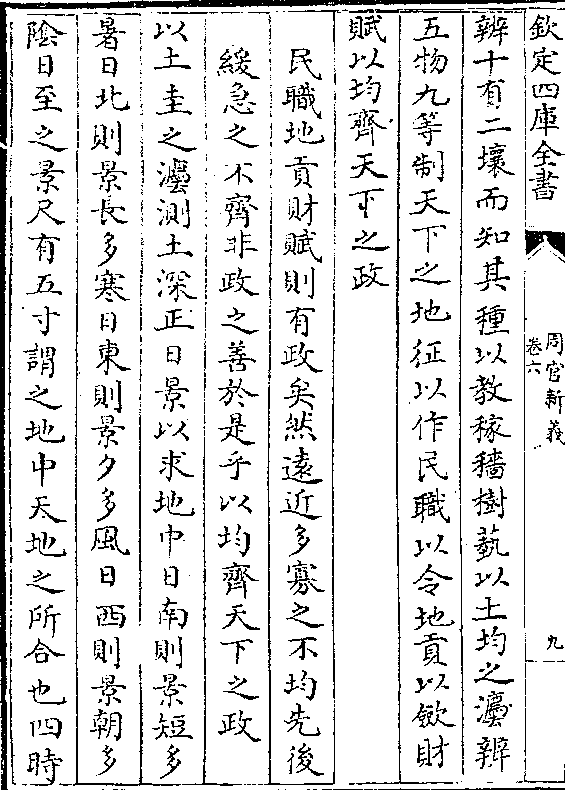 欽定四庫全書
周官新義
卷六
九
辨十有二壤而知其種以教稼穡樹藝以土均之灋辨
五物九等制天下之地征以作民職以令地貢以斂財
賦以均齊天下之政
民職地貢財賦則有政矣然遠近多寡之不均先後
緩急之不齊非政之善於是乎以均齊天下之政
以土圭之灋測土深正日景以求地中日南則景短多
暑日北則景長多寒日東則景夕多風日西則景朝多
陰日至之景尺有五寸謂之地中天地之所合也四時